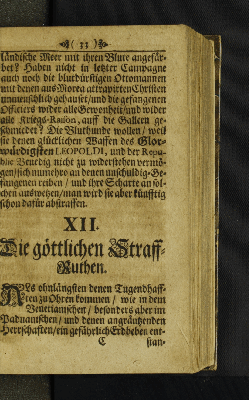 ( 33 )
ländische Meer mit ihren Blute angefär-
bet? Haben nicht in letzter Campagne
auch noch die blutdürstigen Ottomannen
mit denen aus Morea attrapirten Christen
unmenschlich gehauset / und die gefangenen
Officiers wider alle Gewonheit / und wider
alle Kriegs-Raison, auff die Galleen ge-
schmiedet? Die Bluthunde wollen / weil
sie denen glücklichen Waffen des Glor-
würdigsten LEOPOLDI, und der Repu-
blic Venedig nicht zu widerstehen vermö-
gen / sich nunmehro an denen unschuldig-Ge-
fangenen reiben / und ihre Scharte an sol-
chen auswetzen / man wird sie aber künfftig
schon dafür abstraffen.
XII.
Die göttlichen Straff-
Ruthen.
ES ohnlängsten denen Tugendhaff-
ten zu Ohren kommen / wie in dem
Venetianischen / besonders aber im
Paduanischen / und denen angräntzenden
Herrschafften / ein gefährlich Erdbeben ent-
C stan-